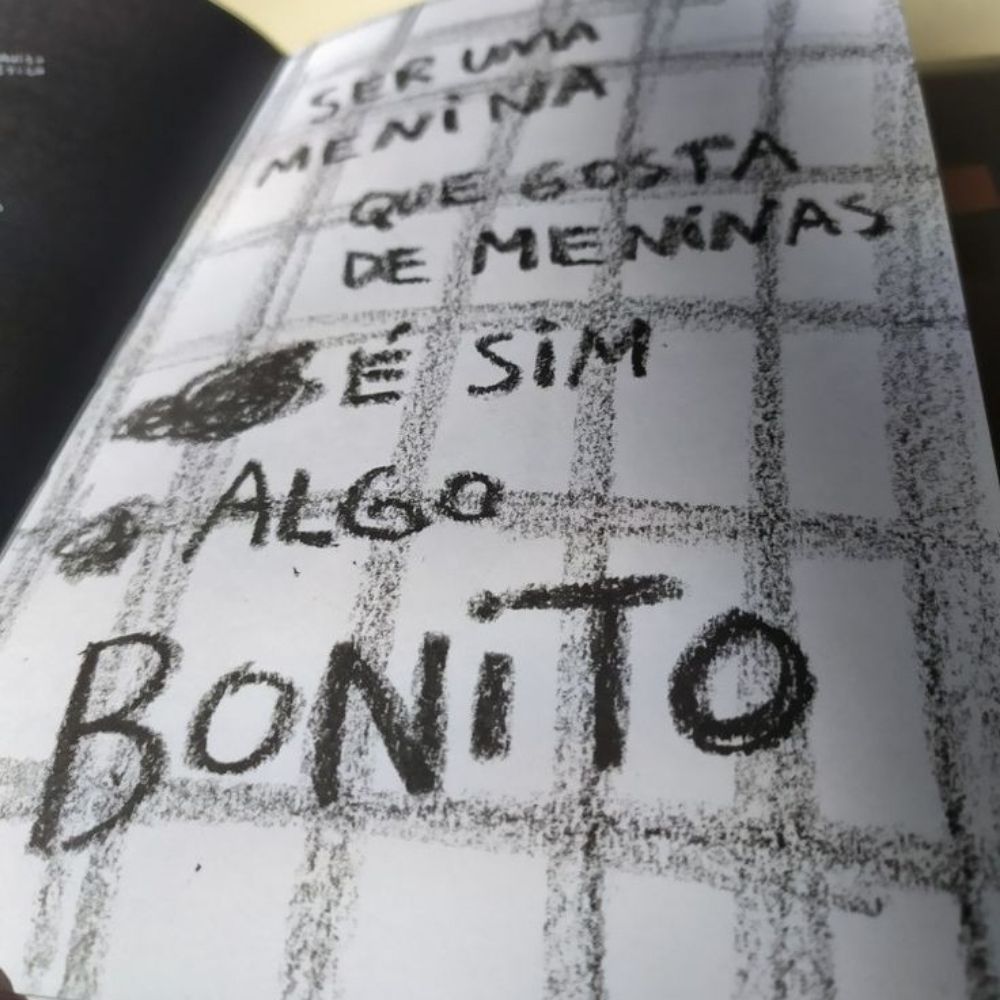 SER UMA
MENINA
QUE GOSTA
DE MENINAS
É SIM
ALGO
BONITO